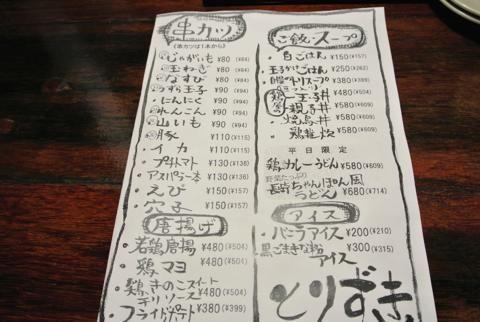 串カツ
(串カツは1本から)
じゃがいも ¥80 (¥84)
玉ねぎ ¥80 (¥84)
なすび ¥80 (¥84)
うずら玉子 ¥90 (¥94)
にんにく ¥90 (¥94)
れんこん ¥90 (¥94)
山いも ¥90 (¥94)
豚 ¥110 (¥115)
イカ ¥110 (¥115)
プチトマト ¥130 (¥136)
アスパラ一本 ¥130 (¥136)
えび ¥150 (¥157)
穴子 ¥150 (¥157)
唐揚げ
若鶏唐揚 ¥480 (¥504)
鶏マヨ ¥480 (¥504)
鶏ときのこスイート
チリソース ¥480 (¥504)
フライドポテト ¥380 (¥399)
ご飯・スープ
白ごはん ¥150 (¥157)
玉子かけごはん ¥250 (¥262)
トリスープ ¥380 (¥399)
玉子丼 ¥480 (¥504)
親子丼 ¥580 (¥609)
焼鳥丼 ¥580 (¥609)
鶏雑炊 ¥580 (¥609)
平日限定
鶏カレーうどん ¥580 (¥609)
野菜たっぷり
長崎ちゃんぽん風
うどん ¥680 (¥714)
アイス
バニラアイス ¥200 (¥210)
黒ごまきな粉 ¥300 (¥315)
アイス
とりずき